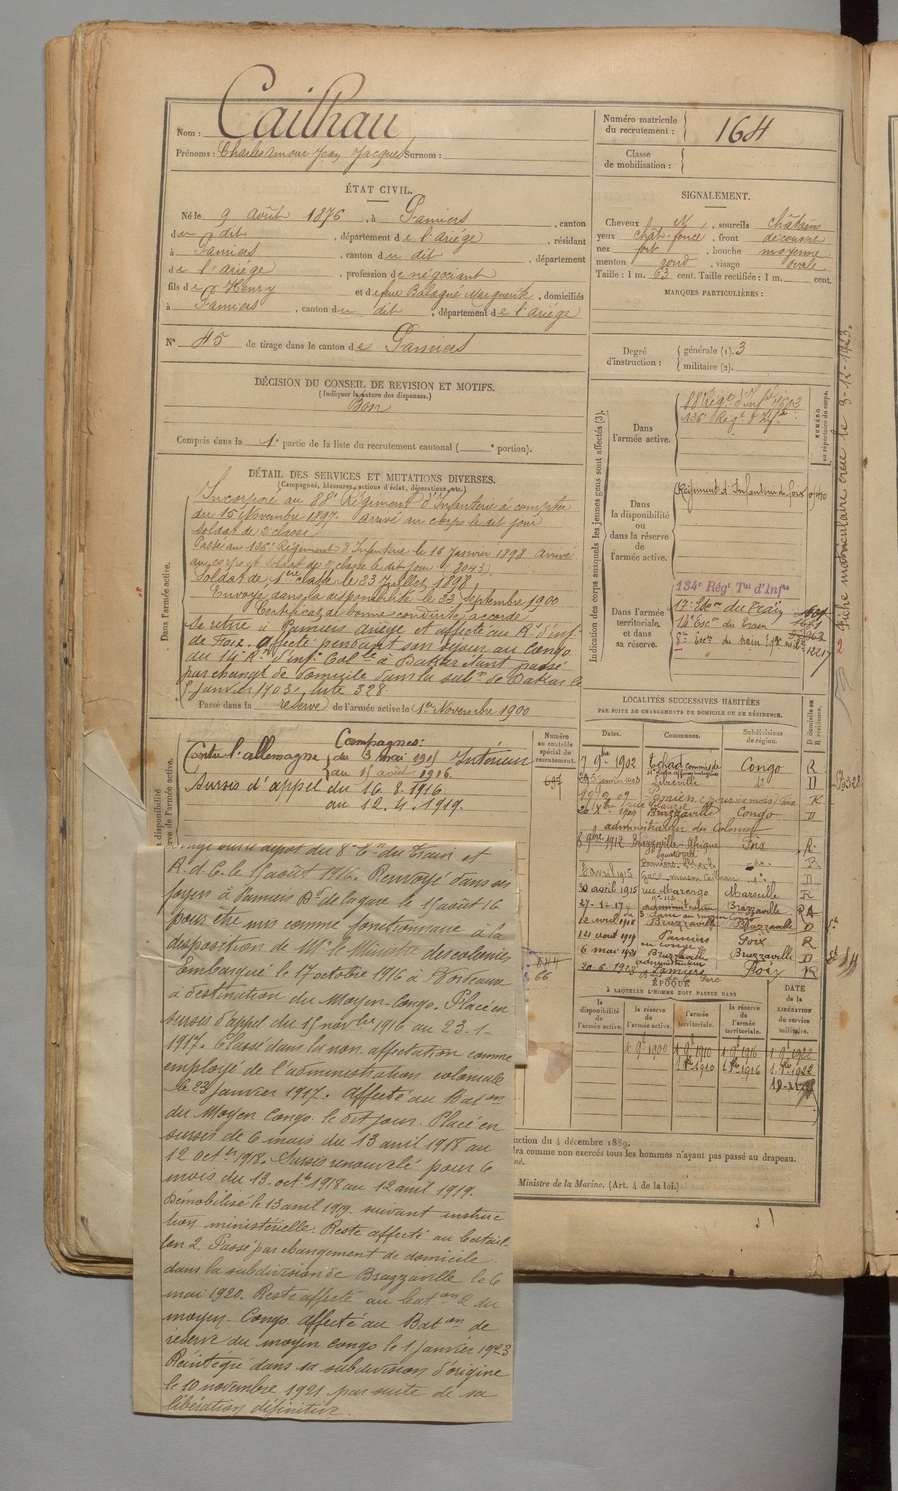 Nom : Cailhau
Prénoms : Charles Amour Jean Jacques Surnom :
Numéro matricule du recrutement : 164
Classe de mobilisation :
ÉTAT CIVIL.
Né le 9 Août 1876, à Pamiers, canton
du dit, département de l'Ariége, résidant
à Pamiers, canton du dit, département
de l'Ariége, profession de négociant
fils de Henry et de feue Balagué Marguerite, domiciliés
à Pamiers, canton du dit, département de l'Ariége
N° 45 de tirage dans le canton de Pamiers
SIGNALEMENT.
Cheveux N, sourcils châtain
yeux chât. foncé, front découvert
nez fort, bouche moyenne
menton rond, visage ovale
Taille : 1 m. 63 cent. Taille rectifiée : 1 m. cent.
MARQUES PARTICULIÈRES :
Degré d'instruction : générale (1). 3
militaire (2).
DÉCISION DU CONSEIL DE REVISION ET MOTIFS.
(Indiquer la nature des dispenses.)
Bon
Compris dans la 1e partie de la liste du recrutement cantonal ( e portion).
DÉTAIL DES SERVICES ET MUTATIONS DIVERSES.
(Campagnes, blessures, actions d'éclat, décorations, etc.)
Dans l'armée active.
Incorporé au 88e Régiment d'Infanterie à compter
du 15 Novembre 1897. arrivé au corps le dit jour
soldat de 2e classe
Passé au 136e Régiment d'Infanterie le 16 Janvier 1898 Arrivé
au corps et soldat de 2e classe le dit jour 8043
Soldat de 1ère classe le 23 Juillet 1898.
Envoyé dans la disponibilité le 22 Septembre 1900
Certificat de bonne conduite accordé
Se retire à Pamiers Ariège et affecté au Rt d'inf.
de Foix. Affecté pendant son séjour au Congo
du 14e Rt d'inf. Col. à Dakar étant passé
par changt de domicile dans la subon de Dakar le
5 janvier 1903, liste 328
Passé dans la réserve de l'armée active le 1er Novembre 1900
Indication des corps auxquels les jeunes gens sont affectés (3).
Dans l'armée active.
88e Régt d'Infie 7602
136e Régt d'Infie
NUMÉRO au répertoire du corps.
Dans la disponibilité ou dans la réserve de l'armée active.
Régiment d'Infanterie de Foix
Dans l'armée territoriale et dans sa réserve.
134e Régt Tal d'Infie
17e Escon du Train
18e Esc. du Train
Fiche matriculaire créée le 3-12-1923.
Campagnes:
Contre l'allemagne du 3 mai 1915 Intérieur
au 15 août 1916.
Sursis d'appel du 16.8.1916.
au 12.4.1919.
Numéro au contrôle spécial du recrutement.
LOCALITÉS SUCCESSIVES HABITÉES
PAR SUITE DE CHANGEMENTS DE DOMICILE OU DE RÉSIDENCE.
Dates. Communes. Subdivisions de région. D. domicile ou R. résidence.
7 9bre 1902 Tchad Congo R
5 janvier 1903 Libreville do D
26 Xbre 1909 Brazzaville Congo D
administrateur des Colonies
1912 Brazzaville Afrique Foix R
8 avril 1915 D
30 avril 1915 rue Marengo Marseille R
27-1-17 administration Brazzaville
12 avril 1918 Brazzaville Brazzaville D
14 aout 1919 Pamiers en congé Foix R
6 mai 1921 Brazzaville Brazzaville D
20-6-1923 Pamiers Foix R
ÉPOQUE
À LAQUELLE L'HOMME DOIT PASSER DANS
la disponibilité de l'armée active. la réserve de l'armée active. l'armée territoriale. la réserve de l'armée territoriale.
DATE de la LIBÉRATION du service militaire.
1 9e 1900 1 9e 1910 1 9e 1916 1 9e 1922
dépôt du 8e Eon du Train et
A.d.C. le 15 août 1916. Renvoyé dans ses
foyers à Pamiers Bd de la gare le 15 août 16
pour être mis comme fonctionnaire à la
disposition de Mr le Ministre des colonies
Embarqué le 17 octobre 1916 à Bordeaux
à destination du Moyen-Congo. Placé en
sursis d'appel du 15 novbre 1916 au 23-1-
1917. Classé dans la non affectation comme
employé de l'administration coloniale
le 23 janvier 1917. Affecté au Baton
du Moyen Congo le dit jour. Placé en
sursis de 6 mois du 13 avril 1918 au
12 octbre 1918. Sursis renouvelé pour 6
mois du 13-octbre 1918 au 12 avril 1919.
Démobilisé le 13 avril 1919. suivant instruc
tion ministérielle. Reste affecté au batail-
lon 2. Passé par changement de domicile
dans la subdivision de Brazzaville le 6
mai 1920. Reste affecté au Baton 2 du
moyen-Congo. Affecté au Baton de
réserve du moyen congo le 1 janvier 1923
Réintégré dans sa subdivision d'origine
le 10 novembre 1921 par suite de sa
libération définitive.
uction du 4 décembre 1889.
dra comme non exercés tous les hommes n'ayant pas passé au drapeau.
Ministre de la Marine. (Art. 4 de la loi.)